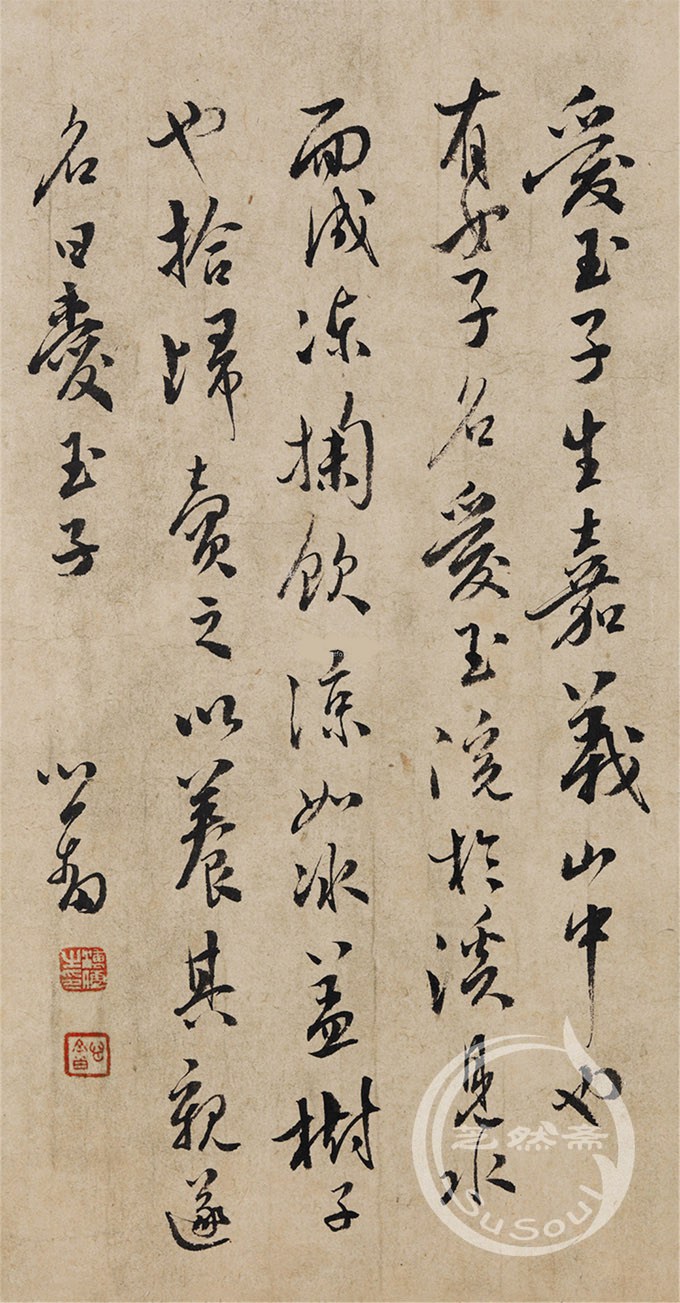 愛玉子生嘉義山中也
有女子名愛玉浣於溪見水
而成凍掬飲涼如冰蓋樹子
也拾歸賣之以養其親遂
名曰愛玉子
心畬
SuSoul